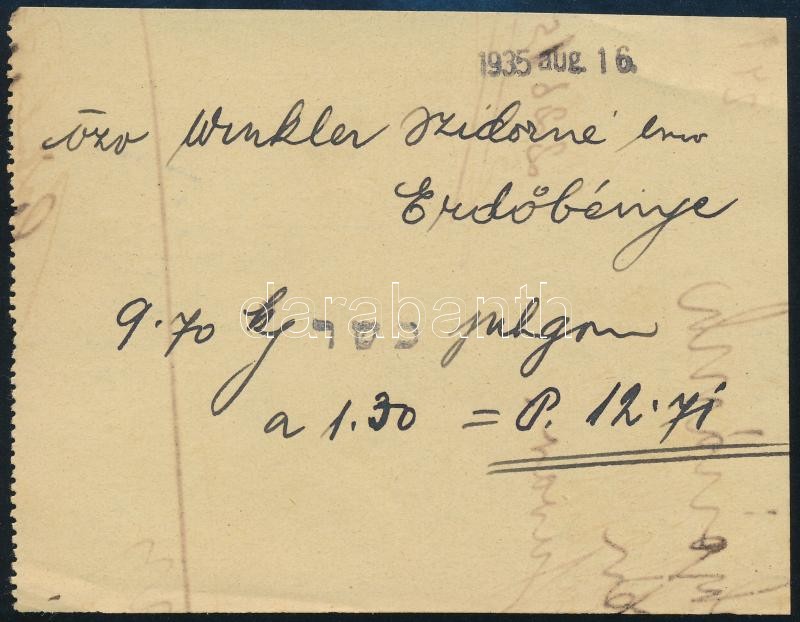 1935 aug. 16.
Özv Winkler Szidorné
Erdőbénye
9.70 kg כשר
a 1.30 = P. 12.71
darabanth